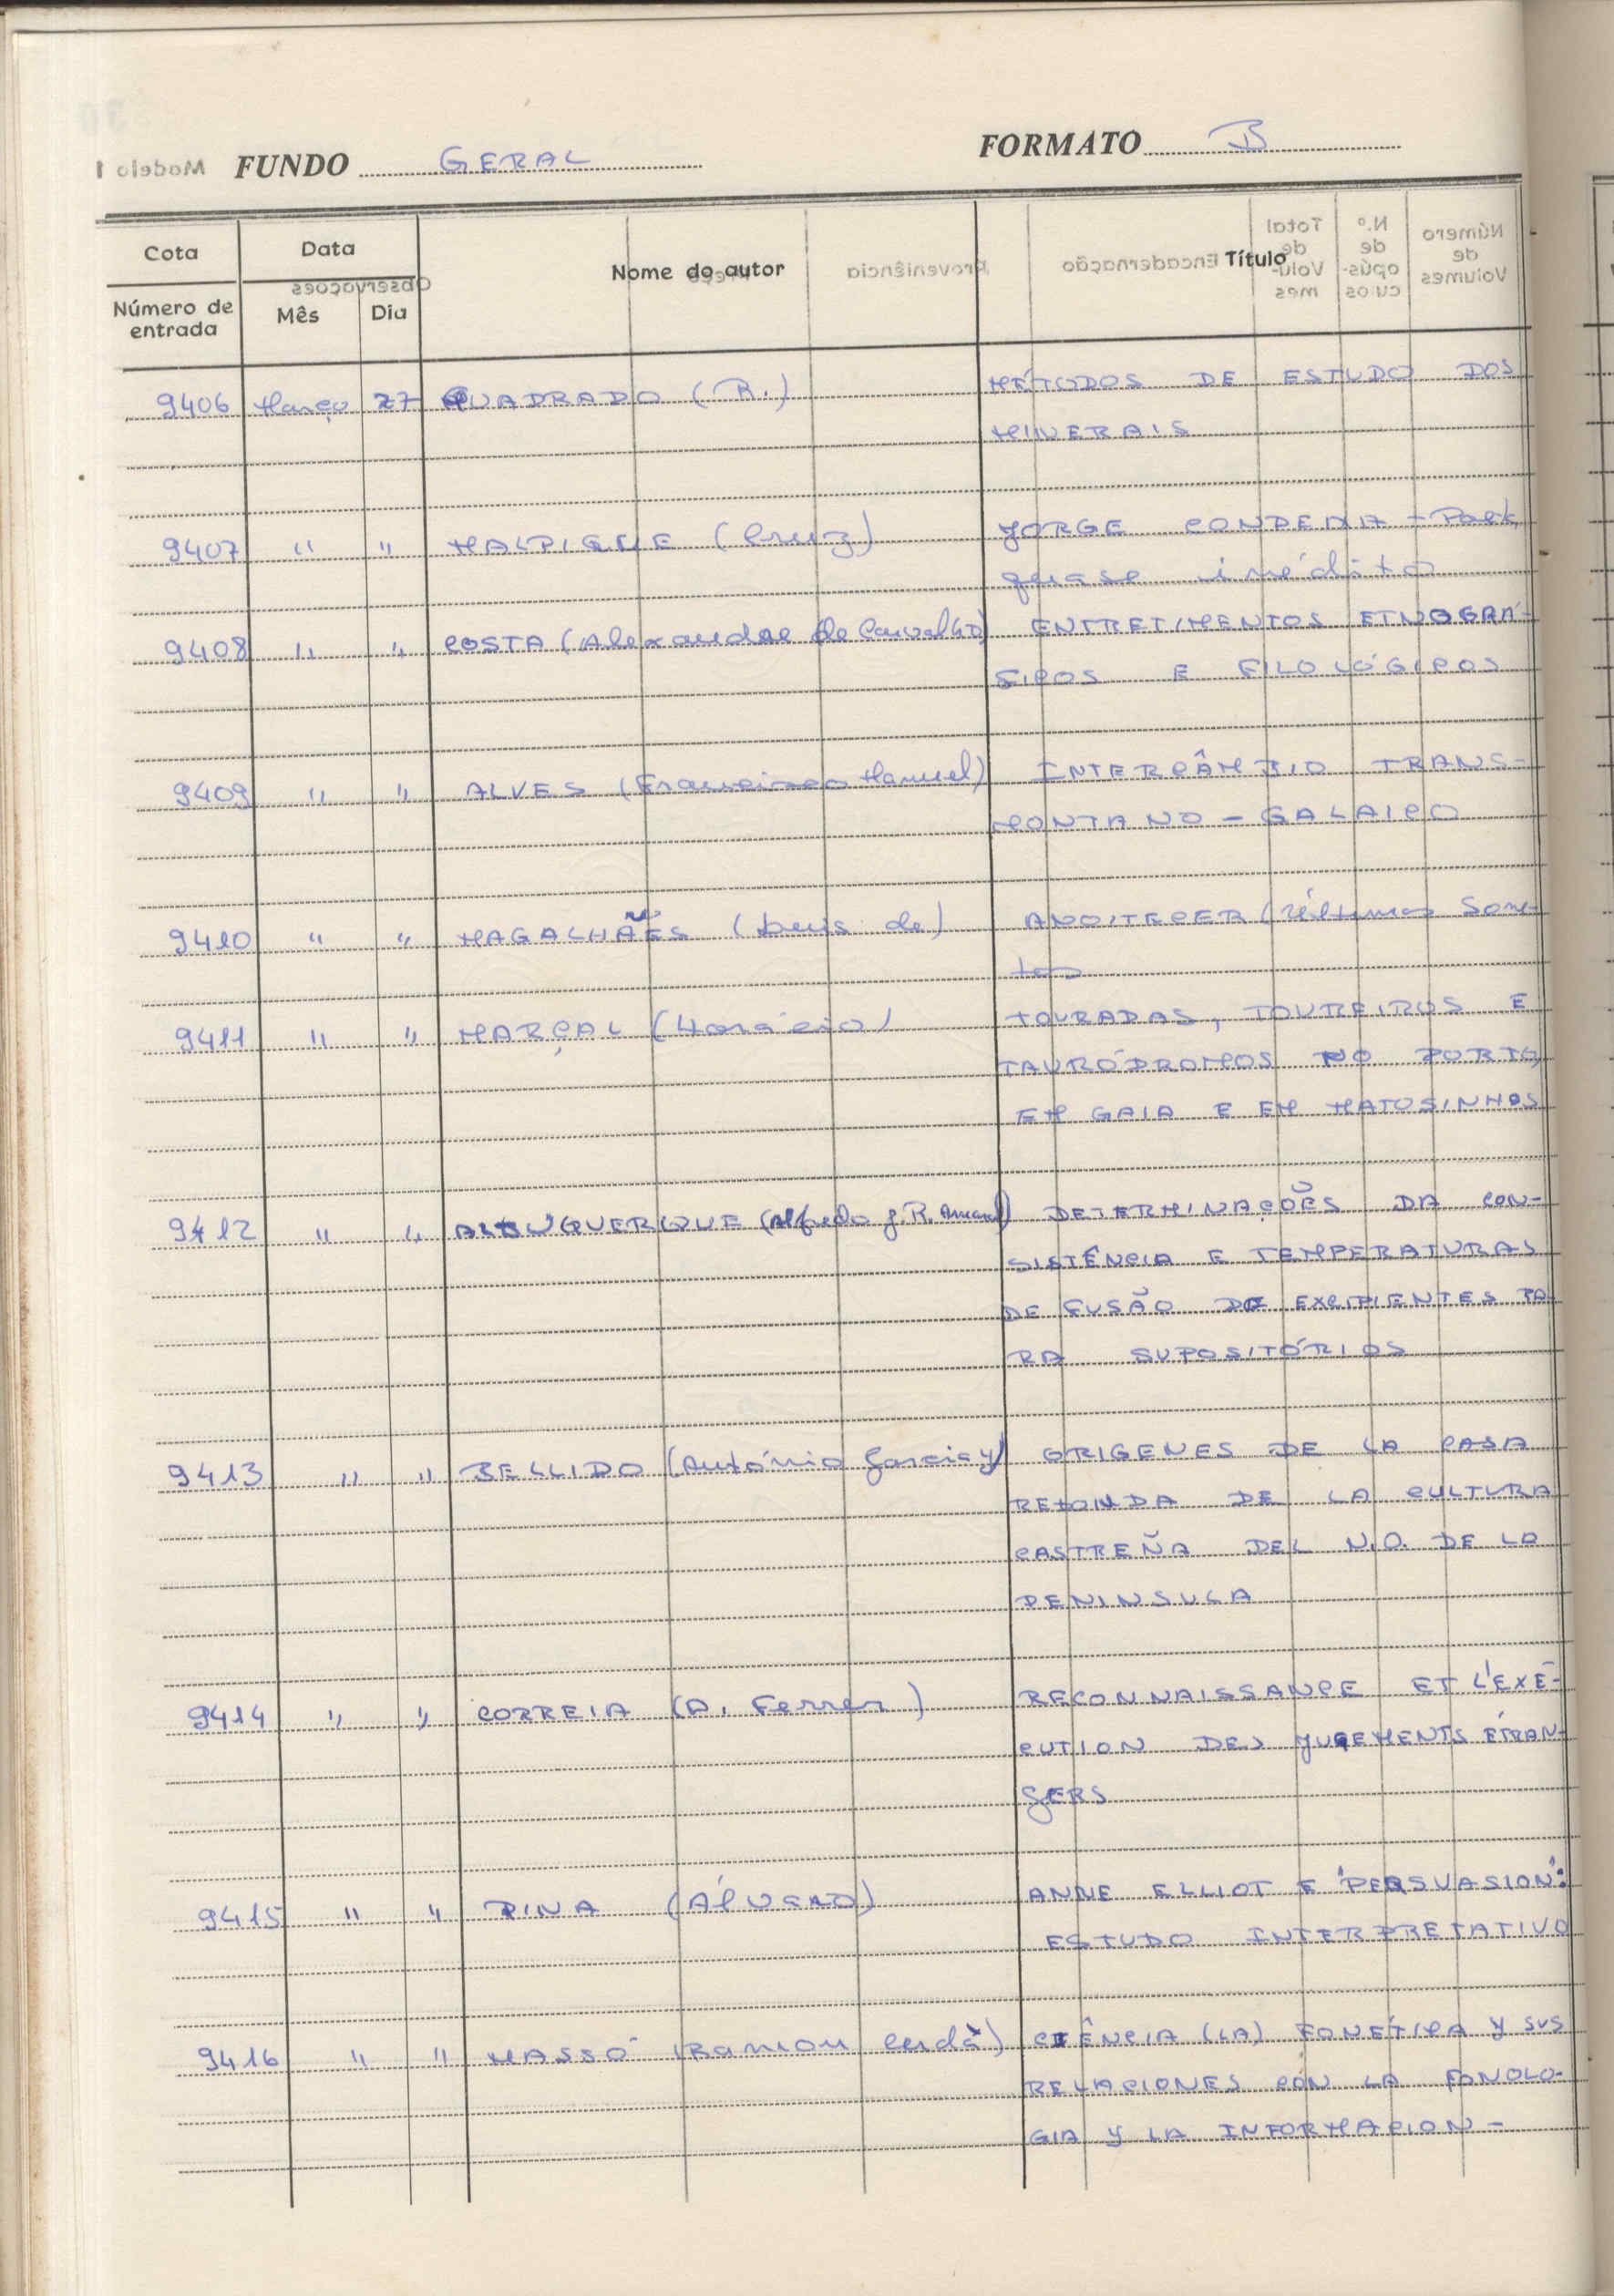 FUNDO GERAL FORMATO B
Cota Data Nome do autor Título
Número de entrada Mês Dia
9406 Março 27 QUADRADO (R.) MÉTODOS DE ESTUDO DOS
MINERAIS
9407 " " MALPIQUE (Cruz) JORGE CONDEIXA - Poeta
quase inédito
9408 " " COSTA (Alexandre de Carvalho) ENTRETIMENTOS ETNOGRÁ-
FICOS E FILOLÓGICOS
9409 " " ALVES (Francisco Manuel) INTERCÂMBIO TRANS-
MONTANO - GALAICO
9410 " " MAGALHÃES (Luis de) ANOITECER (Últimos Sone-
tos
9411 " " MARÇAL (Horácio) TOURADAS, TOUREIROS E
TAURÓDROMOS NO PORTO,
EM GAIA E EM MATOSINHOS
9412 " " ALBUQUERQUE (Alfredo J. R. Amaral) DETERMINAÇÕES DA CON-
SISTÊNCIA E TEMPERATURAS
DE FUSÃO DE EXCIPIENTES PA-
RA SUPOSITÓRIOS
9413 " " BELLIDO (António Garcia y) ORIGENES DE LA CASA
REDONDA DE LA CULTURA
CASTREÑA DEL N.O. DE LA
PENINSULA
9414 " " CORREIA (A. Ferrer) RECONNAISSANCE ET L'EXÉ-
CUTION DES JUGEMENTS ÉTRAN-
GERS
9415 " " PINA (Álvaro) ANNE ELLIOT E "PERSUASION":
ESTUDO INTERPRETATIVO
9416 " " MASSÓ (Ramon Cerdà) CIÊNCIA (LA) FONÉTICA Y SUS
RELACIONES CON LA FONOLO-
GIA Y LA INFORMACION -